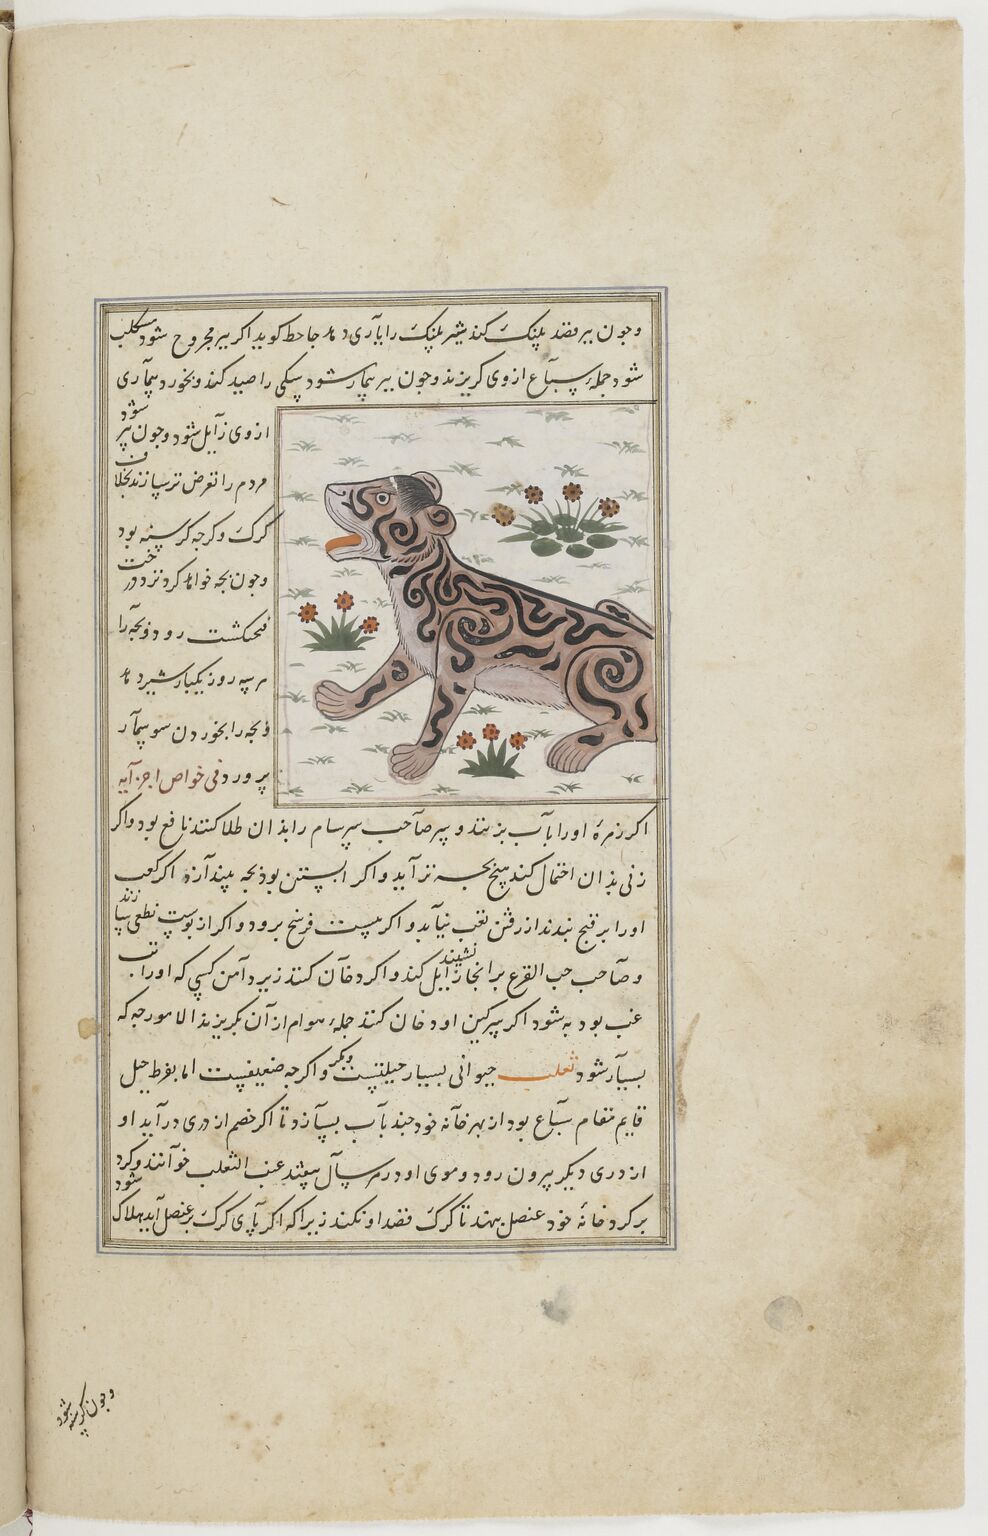 وجون ببر قصد پلنک کند شیر پلنک را یاری دهد جاحظ کوید اکر ببر مجروح شود
شود جمله سباع از وی کریزند وجون ببر بیمار شود سکی را صید کند وبخورد بیماری
از وی زایل شود وجون ببر شود
مردم را تعرض نرساند بخلاف
کرک وکرجه کرسنه بود
وجون بچه خواهد کرد نزد درخت
رود وبچه را
هر سه روز یکبار شیر دهد
وبچه را بخوردن سوسمار
پرورد فی خواص اجزآیه
اکر زهرهٔ او را باب بزنند وسر صاحب سرسام را بدان طلا کنند نافع بود واکر
زنی بدان احتمال کند هیچ بچه نزآید واکر ابستن بود بچه بیندازد اکر کعب
او را بر بندند از رفتن تعب نیاید واکر بیست فرسخ برود واکر از پوست نطعی سازند
وصاحب حب القرع بر انجا نشیند زایل کند واکر دخان کنند زیر دامن کسی که او را تب
غب بود به شود اکر سرکین او دخان کنند جمله هوام از آن بکریزند الا مورجه که
بسیار شود ثعلب حیوانی بسیار حیلتست واکرجه ضعیفست اما بفرط حیل
قایم مقام سباع بود از بهر خانه خود چند باب بسازد تا اکر خصم از دری دراید او
از دری دیکر بیرون رود وموی او در هر سال بیفتد عنب الثعلب خوانند وکرد
بر کرد خانهٔ خود عنصل بنهد تا کرک قصد او نکند زیرا که اکر پای کرک بر عنصل آید هلاک شود
وجون کرسنه شود